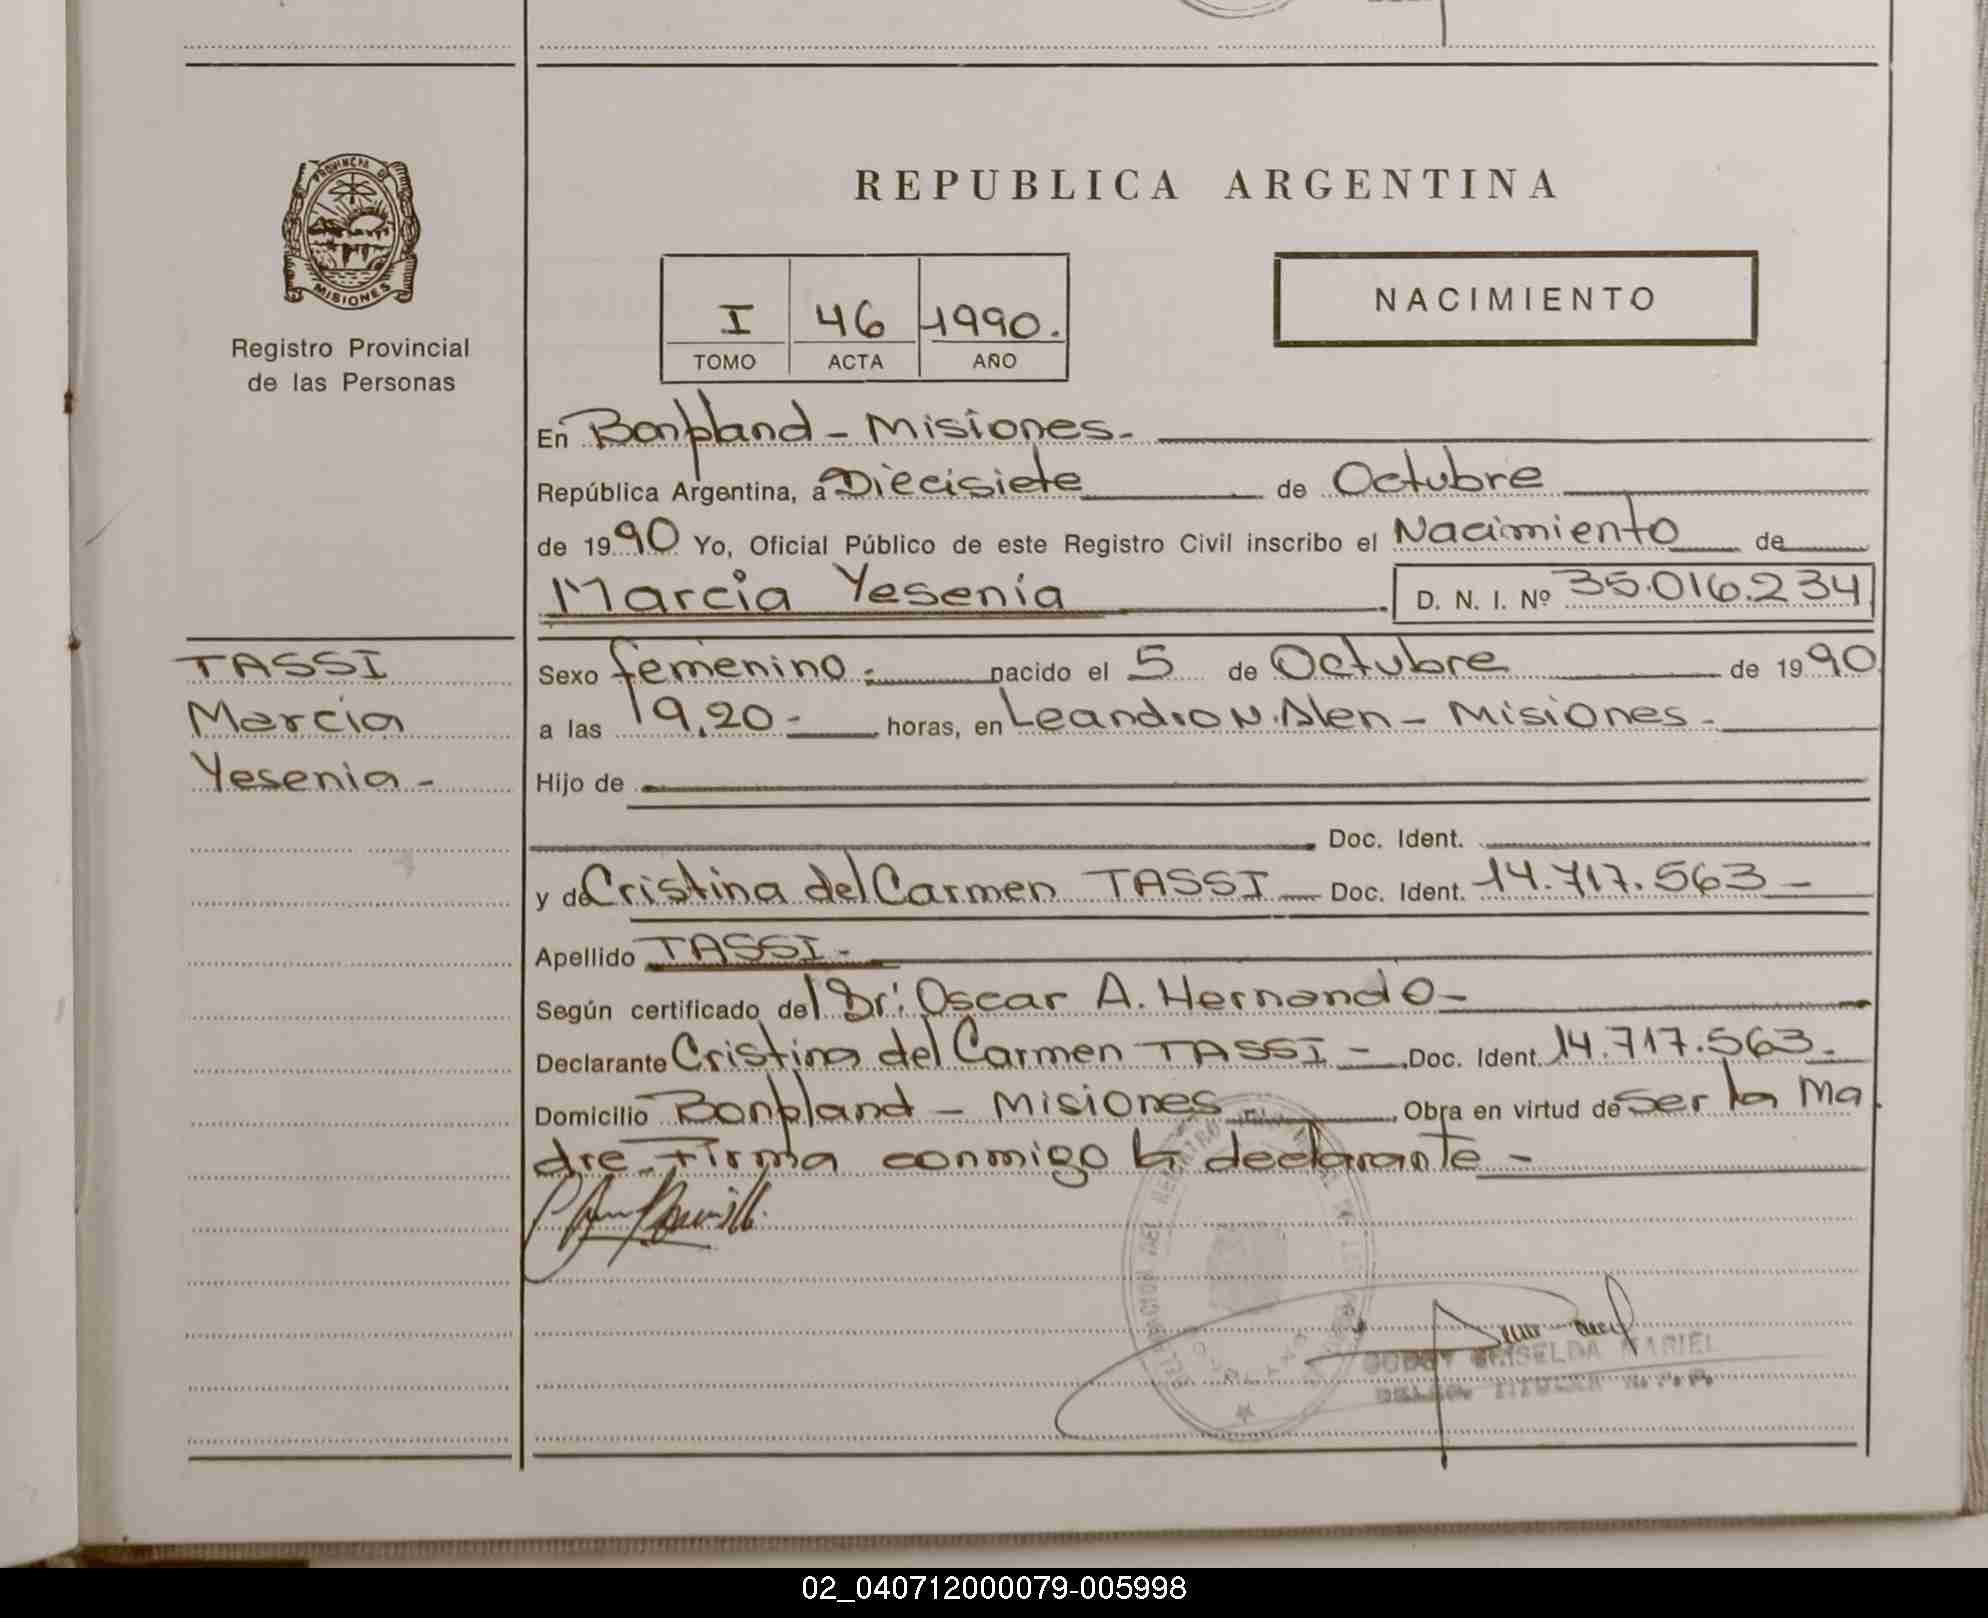 PROVINCIA DE
MISIONES
Registro Provincial
de las Personas
REPUBLICA ARGENTINA
I 46 1990.
TOMO ACTA AÑO
NACIMIENTO
En Bonpland - Misiones.
República Argentina, a Diecisiete de Octubre
de 1990 Yo, Oficial Público de este Registro Civil inscribo el Nacimiento de
Marcia Yesenia D. N. I. Nº 35.016.234
TASSI
Marcia
Yesenia -
Sexo femenino.- nacido el 5 de Octubre de 1990
a las 19,20- horas, en Leandro N. Alen - Misiones -
Hijo de
Doc. Ident.
y de Cristina del Carmen TASSI - Doc. Ident. 14.717.563 -
Apellido TASSI -
Según certificado del Dr: Oscar A. Hernando -
Declarante Cristina del Carmen TASSI - Doc. Ident. 14.717.563.
Domicilio Bonpland - Misiones , Obra en virtud de ser la Ma
dre. Firma conmigo la declarante -
GRISELDA MARIEL
02_040712000079-005998